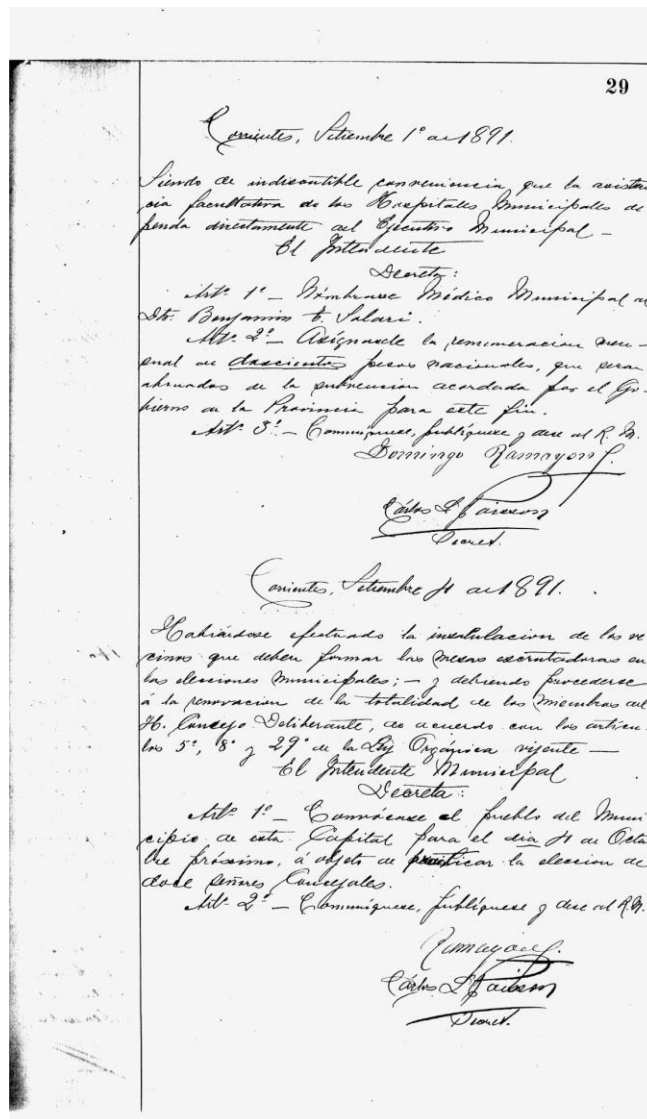 29
Corrientes, Setiembre 1º de 1891.
Siendo de indiscutible conveniencia que la asisten
cia facultativa de los Hospitales Municipales de
penda directamente del Ejecutivo Municipal —
El Intendente
Decreta:
Artº 1º — Nómbrase Médico Municipal al
Dtr. Benjamin T. Solari.
Artº 2º — Asígnasele la remuneracion men-
sual de doscientos pesos nacionales, que seran
abonados de la subvencion acordada por el Go-
bierno de la Provincia para este fin.
Artº 3º — Comuníquese, publíquese y dese al R. M.
Domingo Ramayon G.
Cárlos
Secret.
Corrientes, Setiembre 4 de 1891.
Habiéndose efectuado la insculacion de los ve
cinos que deben formar las mesas escrutadoras en
las elecciones municipales; — y debiendo procederse
á la renovacion de la totalidad de los miembros del
H. Concejo Deliberante, de acuerdo con los artícu-
los 5º, 8º y 29º de la Ley Orgánica vijente —
El Intendente Municipal
Decreta:
Artº 1º — Convócase el pueblo del Muni
cipio de esta Capital para el dia 4 de Octu
bre próximo, á objeto de practicar la eleccion de
doce señores Concejales.
Artº 2º — Comuníquese, publíquese y dese al R. M.
Ramayon G.
Cárlos
Secret.